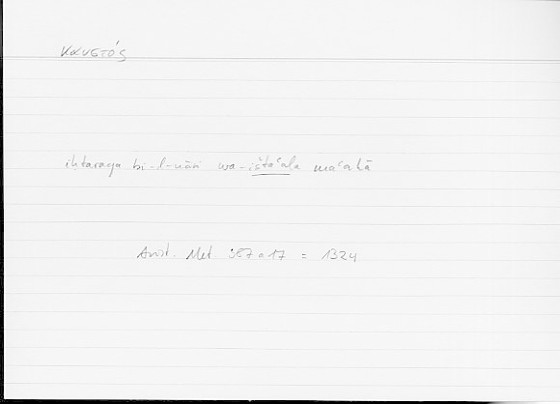 καυστός
iḥtaraqa bi-l-nāri wa-ištaʿala maʿahā
Arist. Met. 387a17 = 1324